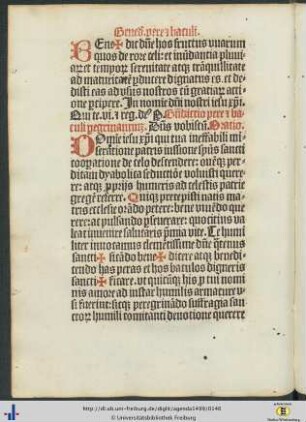 Bened. pere ⁊ baculi.
BEne✠dic dñe hos fructus vuarum
quos de rore celi: et inũdantia pluui
aꝝ et tempoꝝ serenitate atqꝫ trãquillitate
ad maturitatẽ pducere dignatus es. et de
disti eas ad vsus nostros cũ gratiaꝝ acti
one pcipere. In nomine dñi nostri iesu xp̄i.
Qui te. vi. ⁊ reg. de9 Bñdictio pere ⁊ ba
culi peregrinantiũ. Dñs vobiscũ. Oratio.
DOmine iesu xp̄i qui tua ineffabili mi
seratione patris iussione sp̄us sancti
cooperatione de celo descendere: ouẽqꝫ per
ditam dyabolica seductiõe voluisti quere
rere: atqꝫ pprijs humeris ad celestis patrie
gregẽ referre. Quiqꝫ precepisti natis ma
tris ecclesie orãdo petere: bene viuẽdo que
rere: at pulsando pseuerare: quo citius va
leat inuenire salutaris p̄mia vite. Te humi
liter inuocamus clemẽtissime dñe qtenus
sancti✠ficãdo bene✠dicere atqꝫ benedi
cendo has peras et hos baculos digneris
sancti✠ficare. vt quicũqꝫ his p tui nomi
nis amore ad instar humilis armature v
si fuerint: sicqꝫ peregrinãdo suffragia san
ctoꝝ humili comitanti deuotione querere
http://dl.ub.uni-freiburg.de/diglit/agenda1499/0148
© Universitätsbibliothek Freiburg